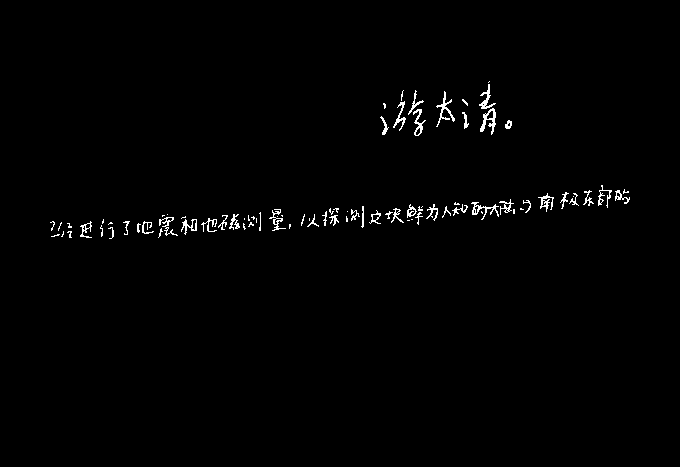 游太清。
进行了地震和地磁测量，以探测这块鲜为人知的大陆与南极东部的